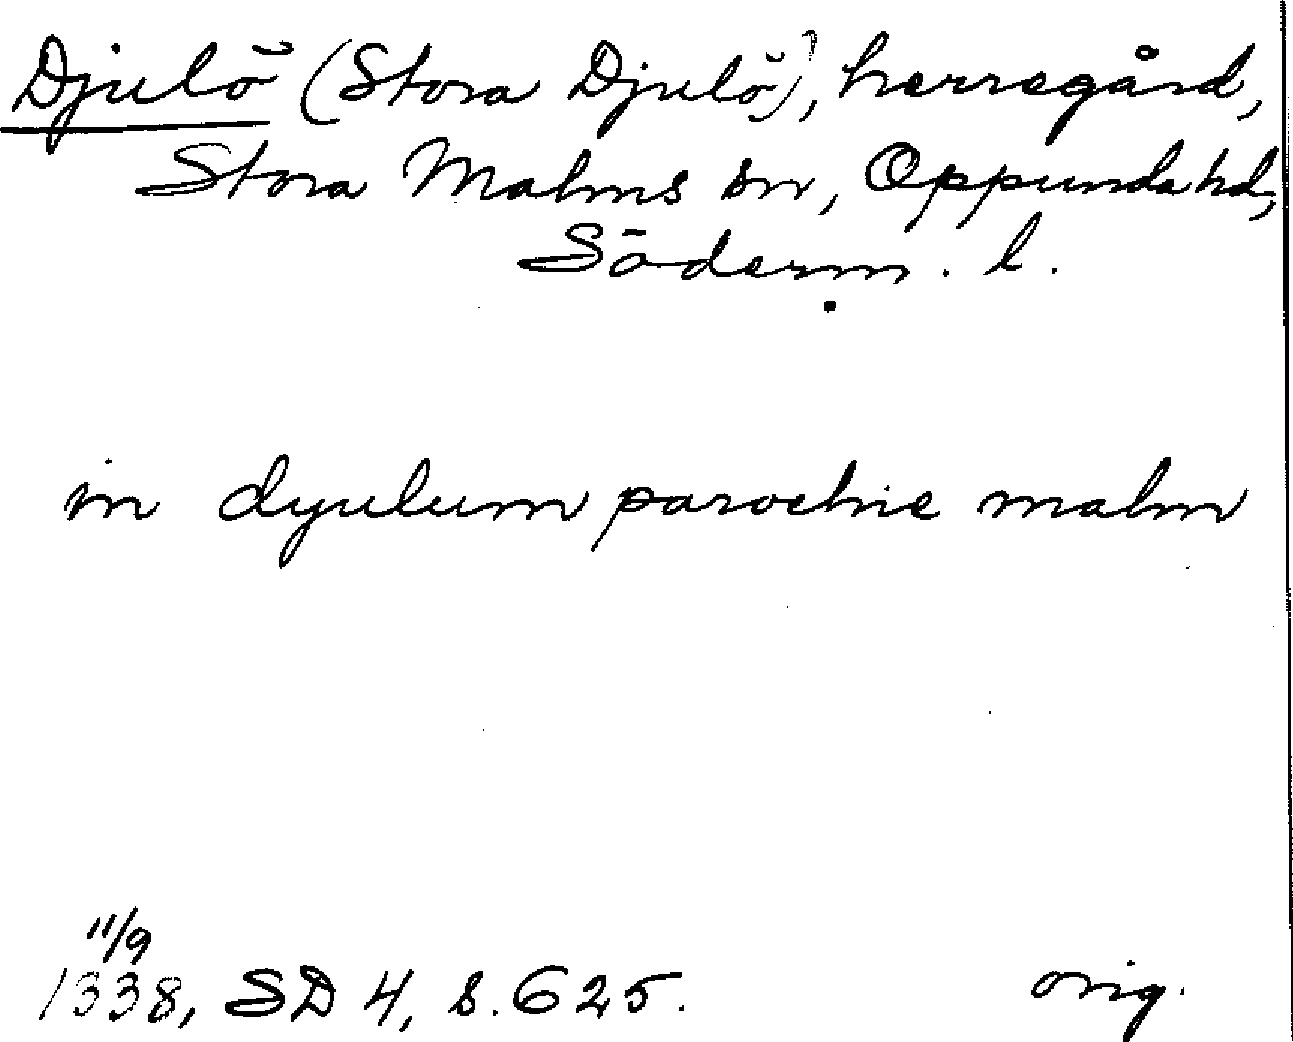 Djulö (Stora Djulö), herregård,
Stora Malms sn, Oppunda hd,
Söderm. l.
in dyulum parochie malm
11/9
1338, SD 4, s. 625. orig.